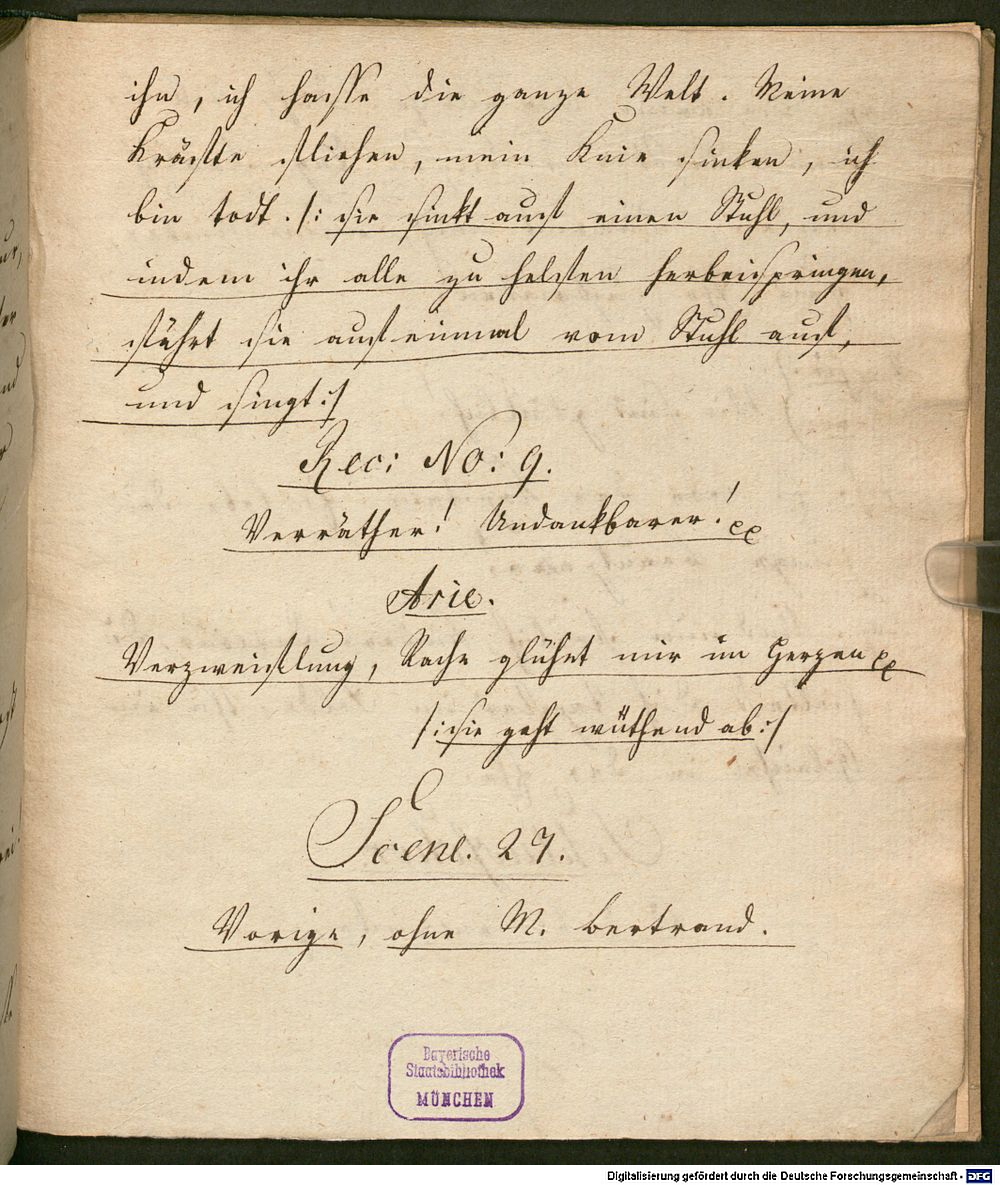 ihn, ich hasse die ganze Welt. Meine
Kräfte fliehen, mein Knie sinken, ich
bin todt. /: sie sinkt auf einen Stuhl, und
indem ihr alle zu helfen herbeispringen,
fährt sie auf einmal vom Stuhl auf,
und singt :/
Rec: No: 9.
Verräther! Undankbarer! xx
Arie.
Verzweiflung, Rache glühet mir im Herzen xx
/: sie geht wüthend ab :/
Scene. 27.
Vorige, ohne M. Bertrand.
Bayerische
Staatsbibliothek
MÜNCHEN
Digitalisierung gefördert durch die Deutsche Forschungsgemeinschaft - DFG